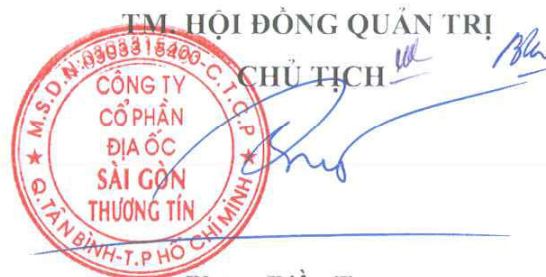 TM. HỘI ĐỒNG QUẢN TRỊ
CHỦ TỊCH
CÔNG TY
CỔ PHẦN
ĐỊA ỐC
SÀI GÒN
THƯƠNG TÍN
Q.TÂN BÌNH-T.P HỒ CHÍ MINH